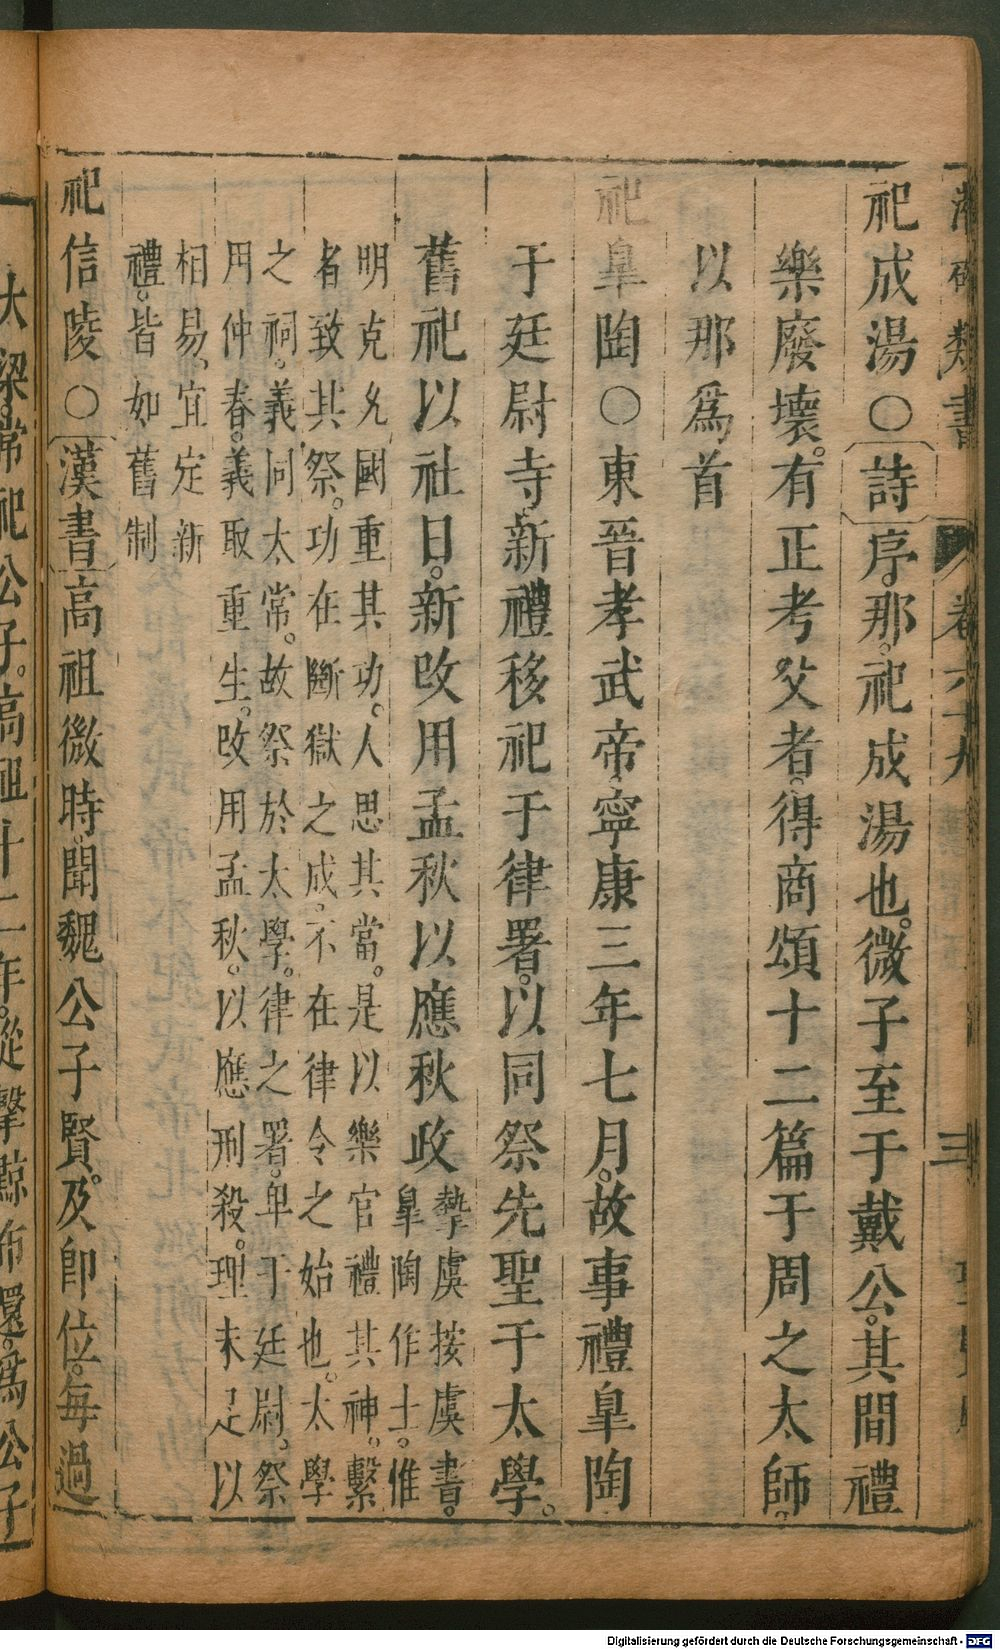 類書 卷六十九 三
祀成湯○詩序。那。祀成湯也。微子至于戴公。其間禮
樂廢壞。有正考父者。得商頌十二篇于周之太師。
以那爲首
祀臯陶○東晉孝武帝。寧康三年七月。故事禮臯陶
于廷尉寺。新禮移祀于律署。以同祭先聖于太學。
舊祀以社日。新改用孟秋以應秋政
摯虞按虞書。
臯陶作士。惟
明克允國重其功。人思其當。是以樂官禮其神。繫
者致其祭。功在斷獄之成。不在律令之始也。太學
之祠。義同太常。故祭於太學。律之署。卑于廷尉。祭
用仲春。義取重生。改用孟秋。以應刑殺。理未足以
相易。宜定新
禮。皆如舊制
祀信陵○漢書高祖微時。聞魏公子賢。及即位。每過
大梁。常祀公子。高祖十二年。從擊黥布還。爲公子
Digitalisierung gefördert durch die Deutsche Forschungsgemeinschaft - DFG